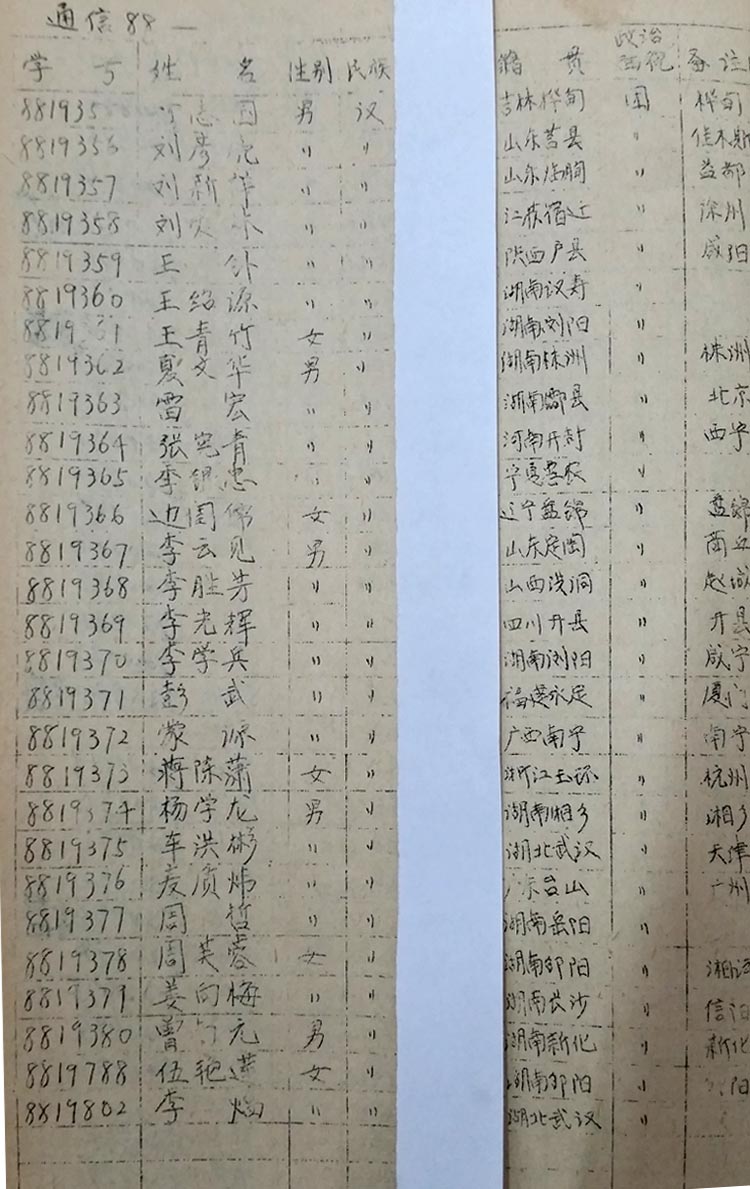 通信88
学 号 姓 名 性别 民族 籍 贯 政治面貌 备注
881935 志国 男 汉 吉林桦甸 团 桦甸
881935 刘彦 〃 〃 山东莒县 〃 佳木斯
8819357 刘新华 〃 〃 山东临朐 〃 益都
8819358 刘 〃 〃 江苏宿迁 〃 深州
8819359 王 〃 〃 陕西户县 〃 咸阳
8819360 王绍源 〃 〃 湖南汉寿 〃
8819 61 王青竹 女 〃 湖南浏阳 〃
8819362 夏文华 男 〃 湖南株洲 〃 株洲
8819363 雷宏 〃 〃 湖南酃县 〃 北京
8819364 张宪青 〃 〃 河南开封 〃 西宁
8819365 李银忠 〃 〃 宁夏 〃
8819366 边闺 女 〃 辽宁盘锦 〃 盘锦
8819367 李云见 男 〃 山东定陶 〃 商丘
8819368 李胜芳 〃 〃 山西洪洞 〃 赵城
8819369 李光辉 〃 〃 四川开县 〃 开县
8819370 李学兵 〃 〃 湖南浏阳 〃 咸宁
8819371 彭武 〃 〃 福建永定 〃 厦门
8819372 蒙源 〃 〃 广西南宁 〃 南宁
8819373 蒋陈潇 女 〃 浙江玉环 〃 杭州
8819374 杨学龙 男 〃 湖南湘乡 〃 湘乡
8819375 车洪彬 〃 〃 湖北武汉 〃 天津
8819376 质炜 〃 〃 广东台山 〃 广州
8819377 周哲 〃 〃 湖南岳阳 〃
8819378 周芙蓉 女 〃 湖南邵阳 〃 湘
8819379 姜向梅 〃 〃 湖南长沙 〃 信
8819380 曾 元 男 〃 湖南新化 〃 新化
8819788 伍艳莲 女 〃 湖南邵阳 〃 阳
8819802 李灿 〃 〃 湖北武汉 〃